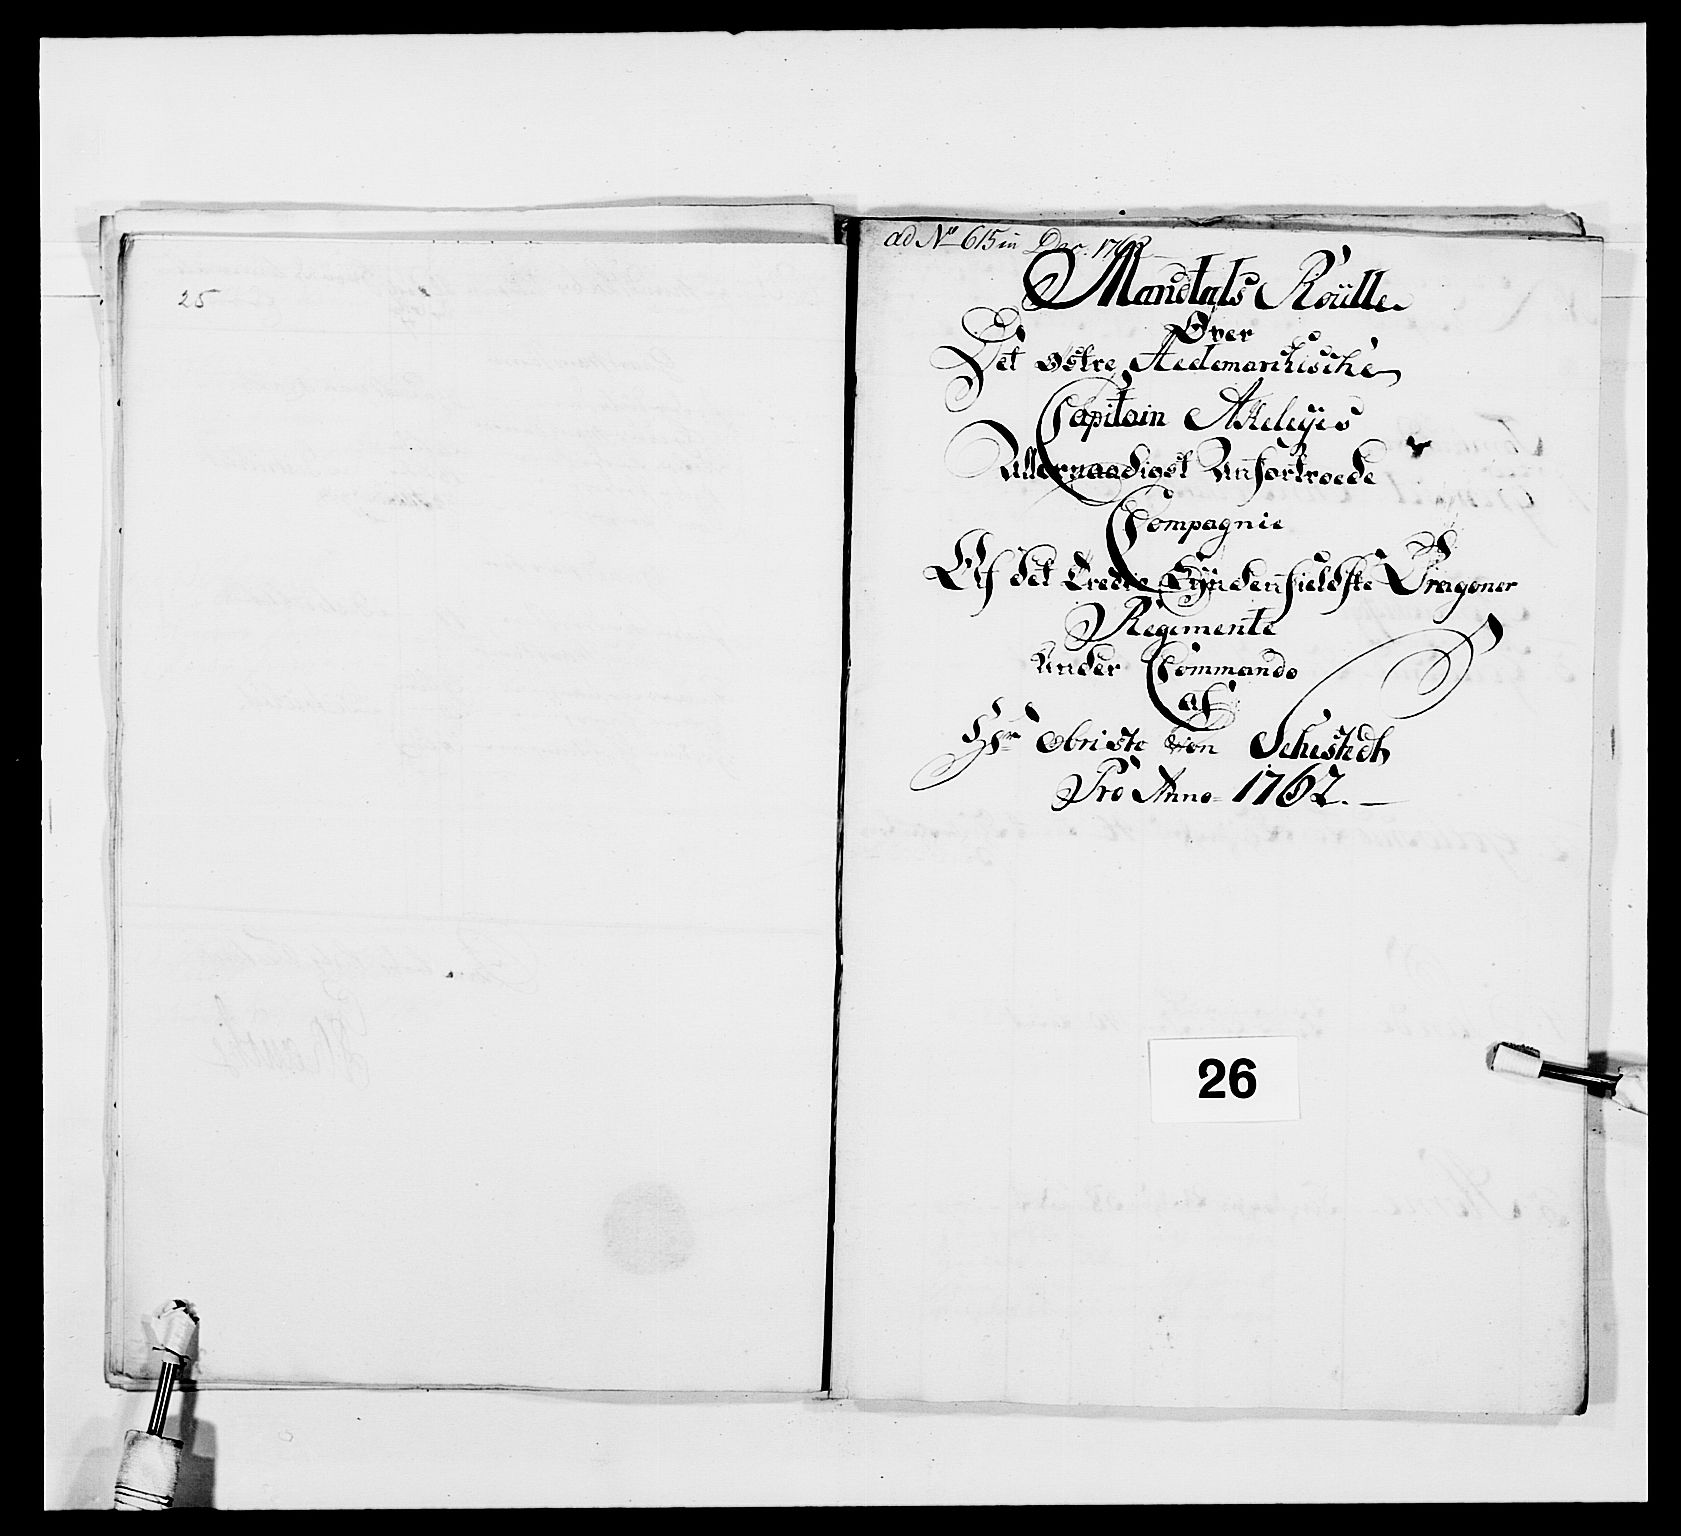 25
ad No 615 in Dec. 1762
Mandtals Roülle
Over
Det østre Hedemarkische
Capitain Akeleÿes
Allernaadigst Anfortroede
Compagnie
Af det Tredie Syndenfieldske Dragoner
Regimente
Under Commando
af
Hr Obriste von Sehestedt
Pro Anno 1762.
26